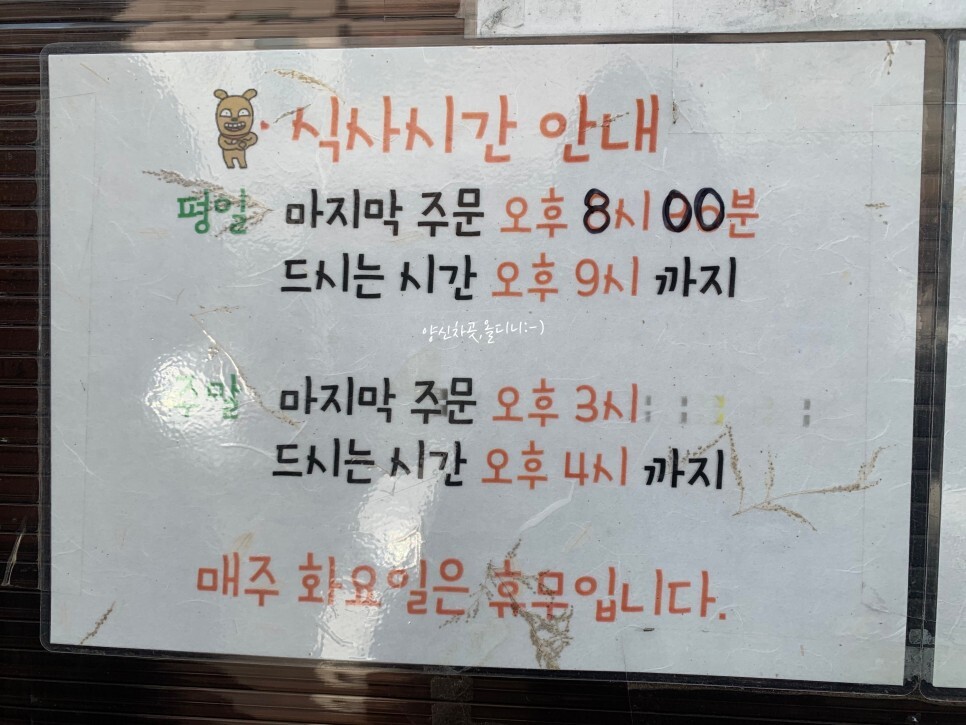 식사시간 안내
평일 마지막 주문 오후 8시 00분
드시는 시간 오후 9시 까지
양신차곳,올디니:-)
주말 마지막 주문 오후 3시
드시는 시간 오후 4시 까지
매주 화요일은 휴무입니다.